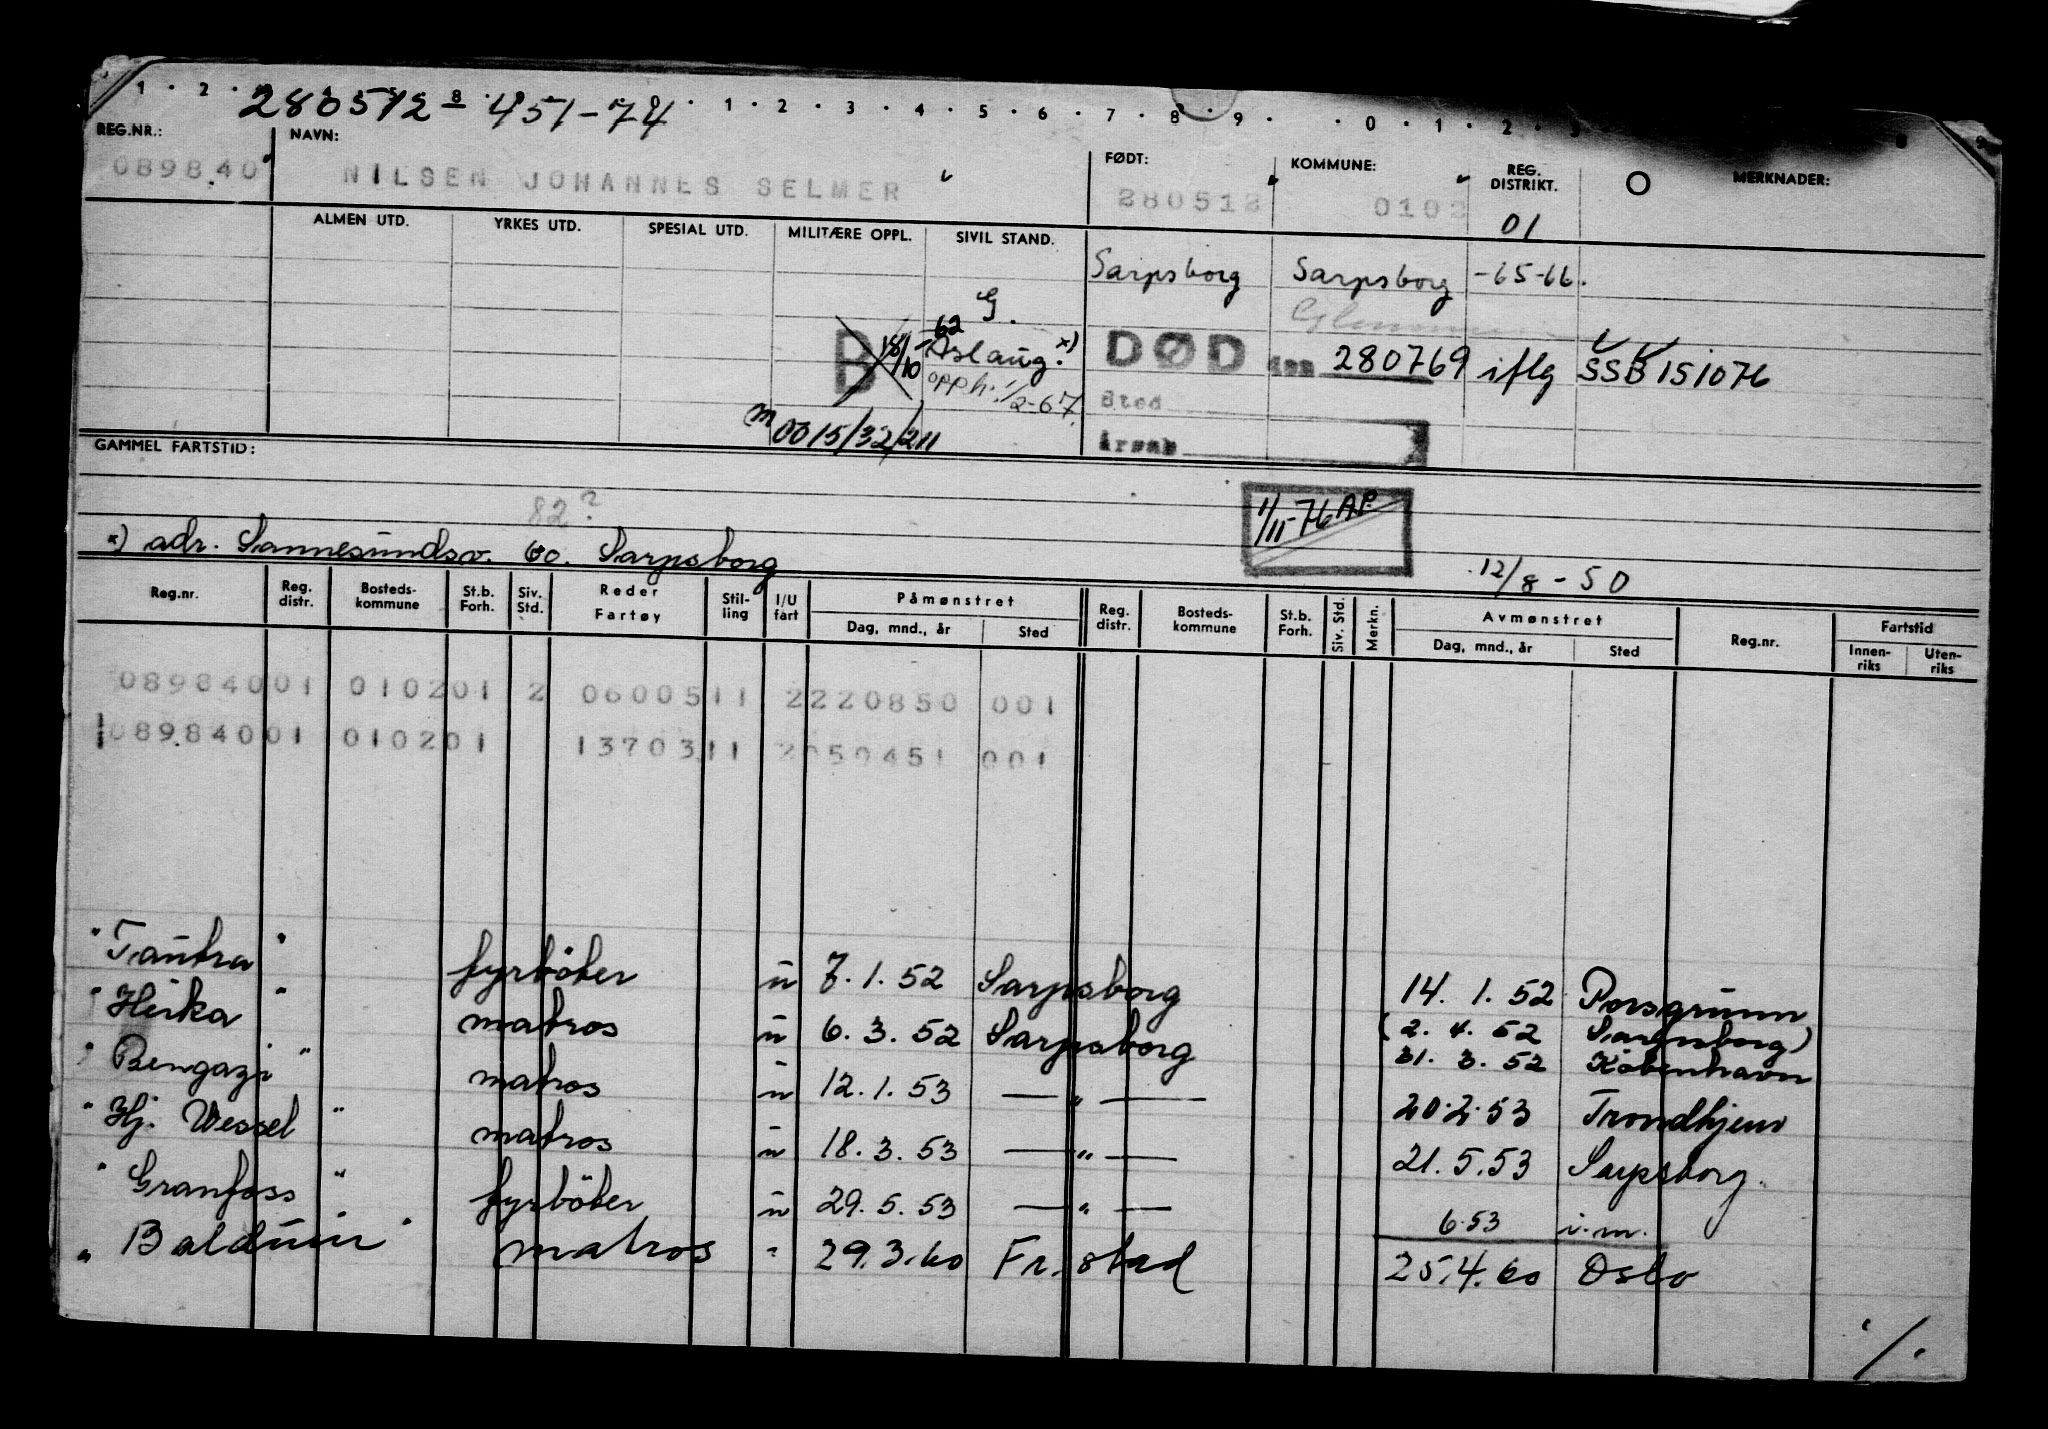 280512 - 451-74
REG.NR.: NAVN: FØDT: KOMMUNE: REG. DISTRIKT. O MERKNADER:
089840 NILSEN JOHANNES SELMER 280512 0102 01
ALMEN UTD. YRKES UTD. SPESIAL UTD. MILITÆRE OPPL. SIVIL STAND.
Sarpsborg Sarpsborg -65-66.
G.
B 18/10 -62 Aslaug. x) DØD den 280769 iflg SSB 151076
opph. 1/2-67 Sted
m 0015/32/211 årsak
GAMMEL FARTSTID:
82? 1/11-76 AP
x) adr. Sannesundsv. 60. Sarpsborg
12/8 - 50
Reg.nr. Reg. distr. Bosteds-kommune St.b. Forh. Siv. Std. Reder Fartøy Stil-ling I/U fart Påmønstret Dag, mnd., år Sted Reg. distr. Bosteds-kommune St.b. Forh. Siv. Std. Merkn. Avmønstret Dag, mnd., år Sted Reg.nr. Fartstid Innen-riks Uten-riks
08984001 010201 2 0600511 2220850 001
08984001 010201 1370311 2050451 001
"Tautra" fyrböter u 7.1.52 Sarpsborg 14.1.52 Porsgrunn
"Heika" matros u 6.3.52 Sarpsborg (2.4.52 Sarpsborg)
31.3.52 København
"Bengazi" matros u 12.1.53 — " — 20.2.53 Trondhjem
"Hj. Wessel" matros u 18.3.53 — " — 21.5.53 Sarpsborg.
"Granfoss" fyrböter u 29.5.53 — " — 6.53 i.m.
"Balduin" matros " 29.3.60 Fr.stad 25.4.60 Oslo
./.